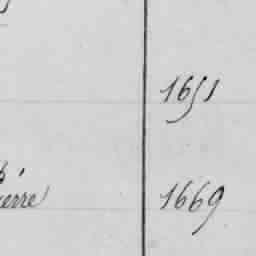 1651
erre 1669